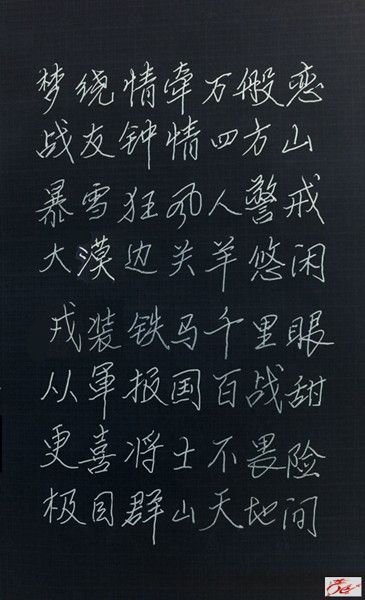 梦绕情牵万般恋
战友钟情四方山
暴雪狂风人警戒
大漠边关羊悠闲
戎装铁马千里眼
从軍报国百战甜
更喜将士不畏险
极目群山天地间